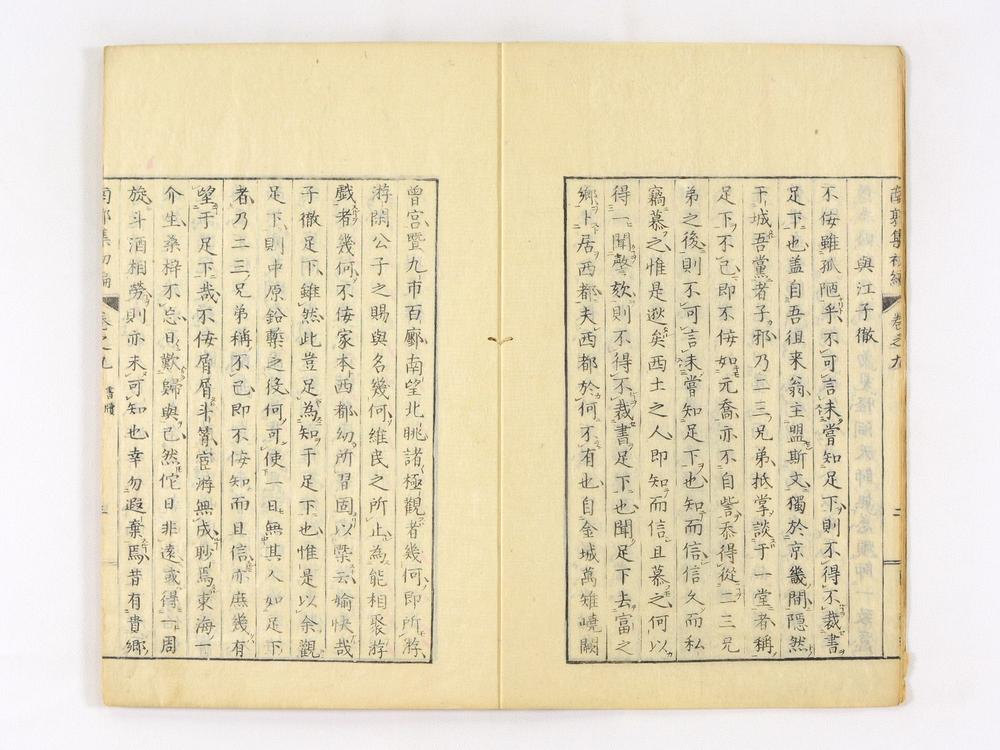 南郭集初編 卷之九 二
與江子徹
不佞雖孤陋乎不可言未嘗知足下則不得不裁書
足下也蓋自吾徂来翁主盟斯文獨於京畿間隱然
干城吾黨者子邪乃二三兄弟抵掌談于一堂者稱
足下不已即不佞如元喬亦不自訾忝得從二三兄
弟之後則不可言未嘗知足下也知而信信久而私
竊慕之惟是逖矣西土之人即知而信且慕之何以
得一聞謦欬則不得不裁書足下也聞足下去富之
鄉卜居西都夫西都於何不有也自金城萬雉嶢闕
曾宮曁九市百廛南望北眺諸極觀者幾何即所游
游閑公子之賜與名幾何維民之所止為能相聚游
戲者幾何不佞家本西都幼所習固以槩云愉快哉
子徹足下雖然此豈足為知于足下也惟是以余觀
足下則中原鉛槧之役何可使一日無其人如足下
者乃二三兄弟稱不已即不佞知而且信亦庶幾有
望于足下哉不佞屑屑斗筲宦游無成眇焉東海一
介生桑梓不忘日歎歸與已然佗日非遠或得一周
旋斗酒相勞則亦未可知也幸勿遐棄焉昔有貴鄉
南郭集初編 卷之九 書牘